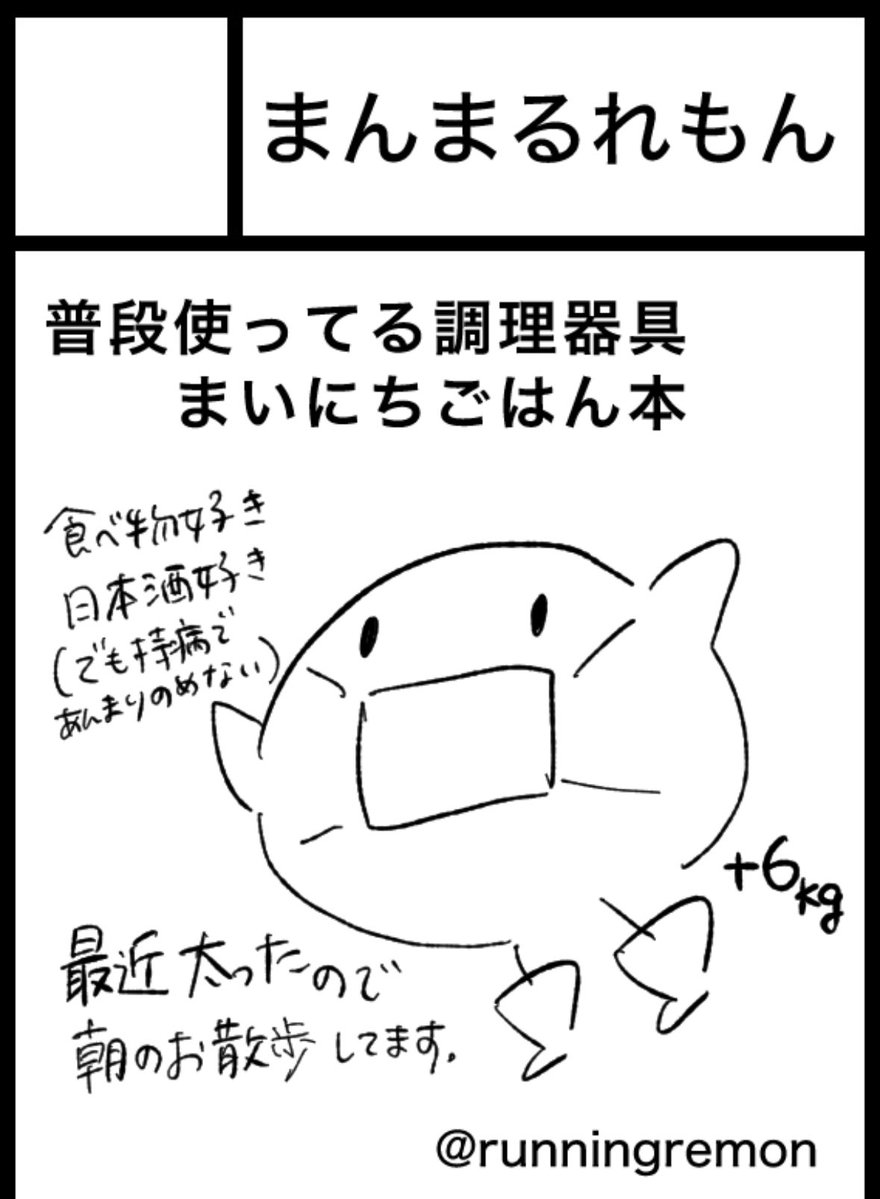 まんまるれもん
普段使ってる調理器具
まいにちごはん本
食べ物好き
日本酒好き
(でも持病で
あんまりのめない)
+6kg
最近太ったので
朝のお散歩してます。
@runningremon